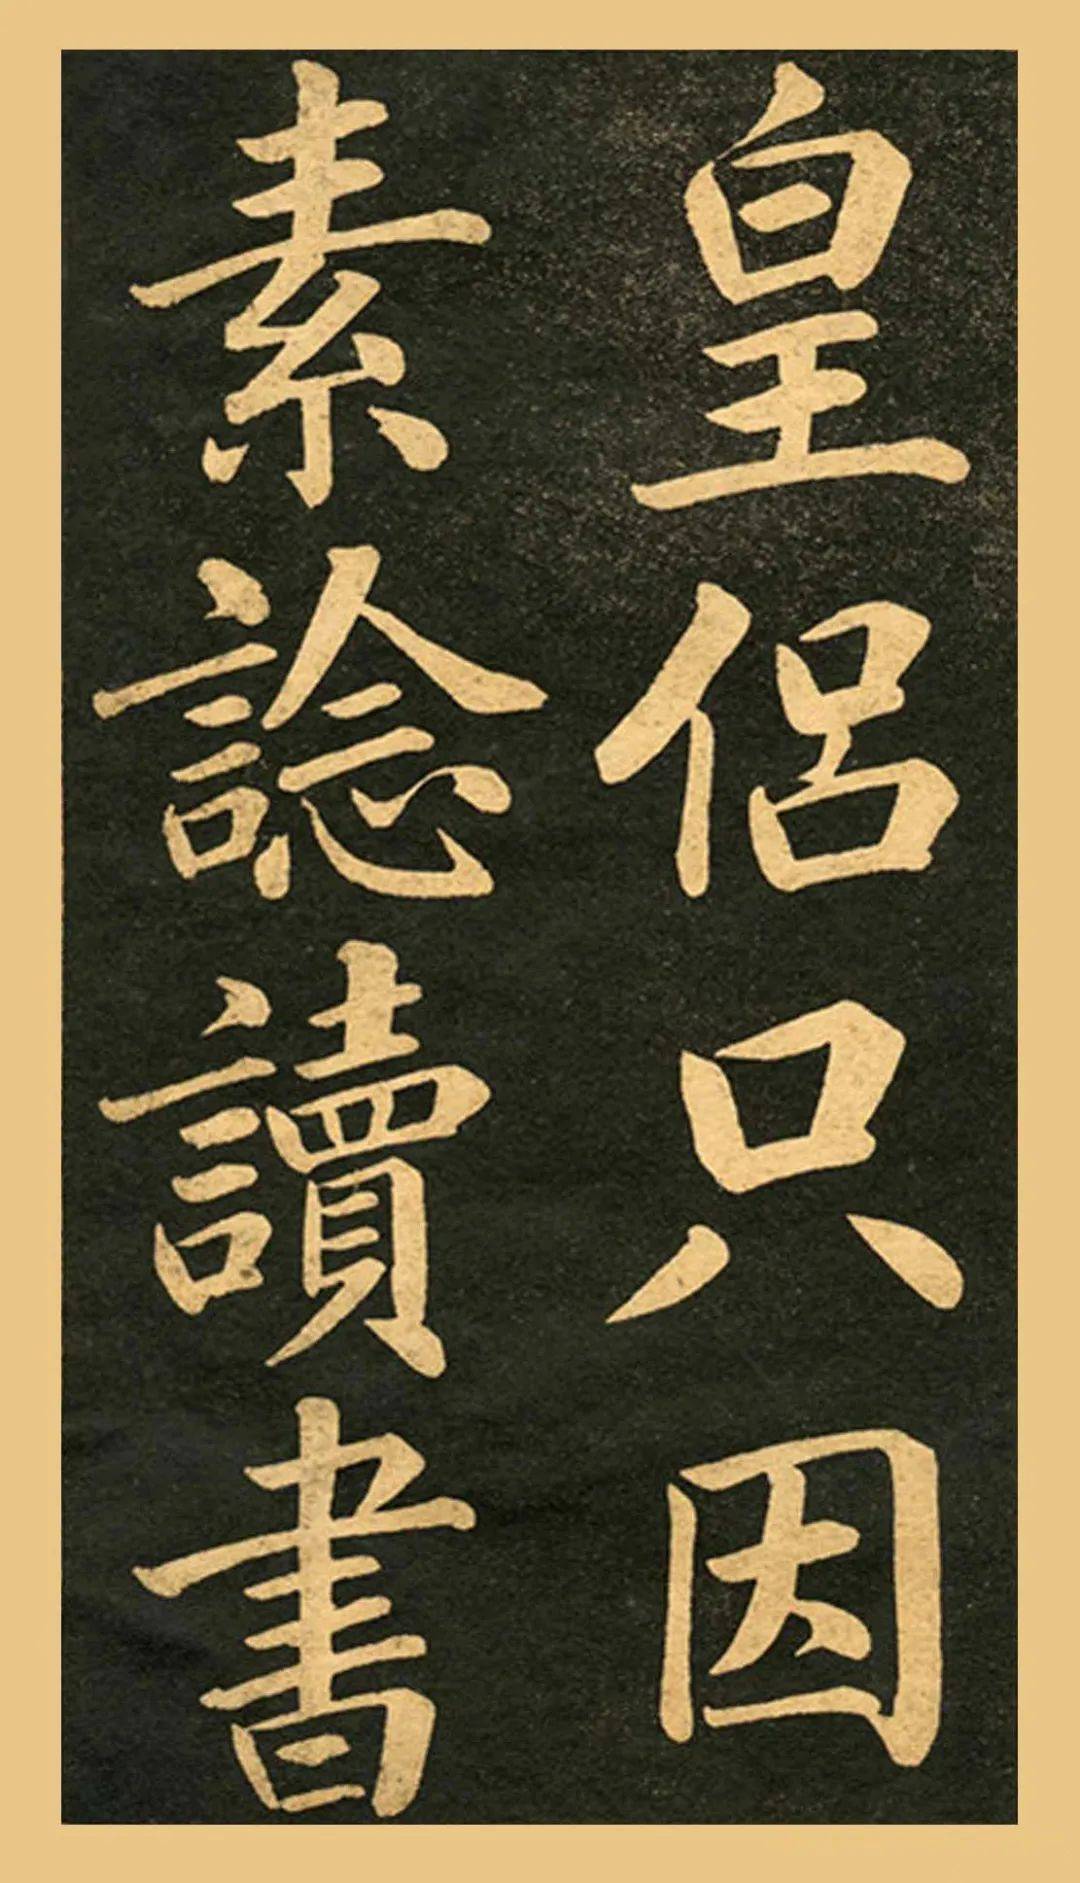 皇侶只因
素諗讀書